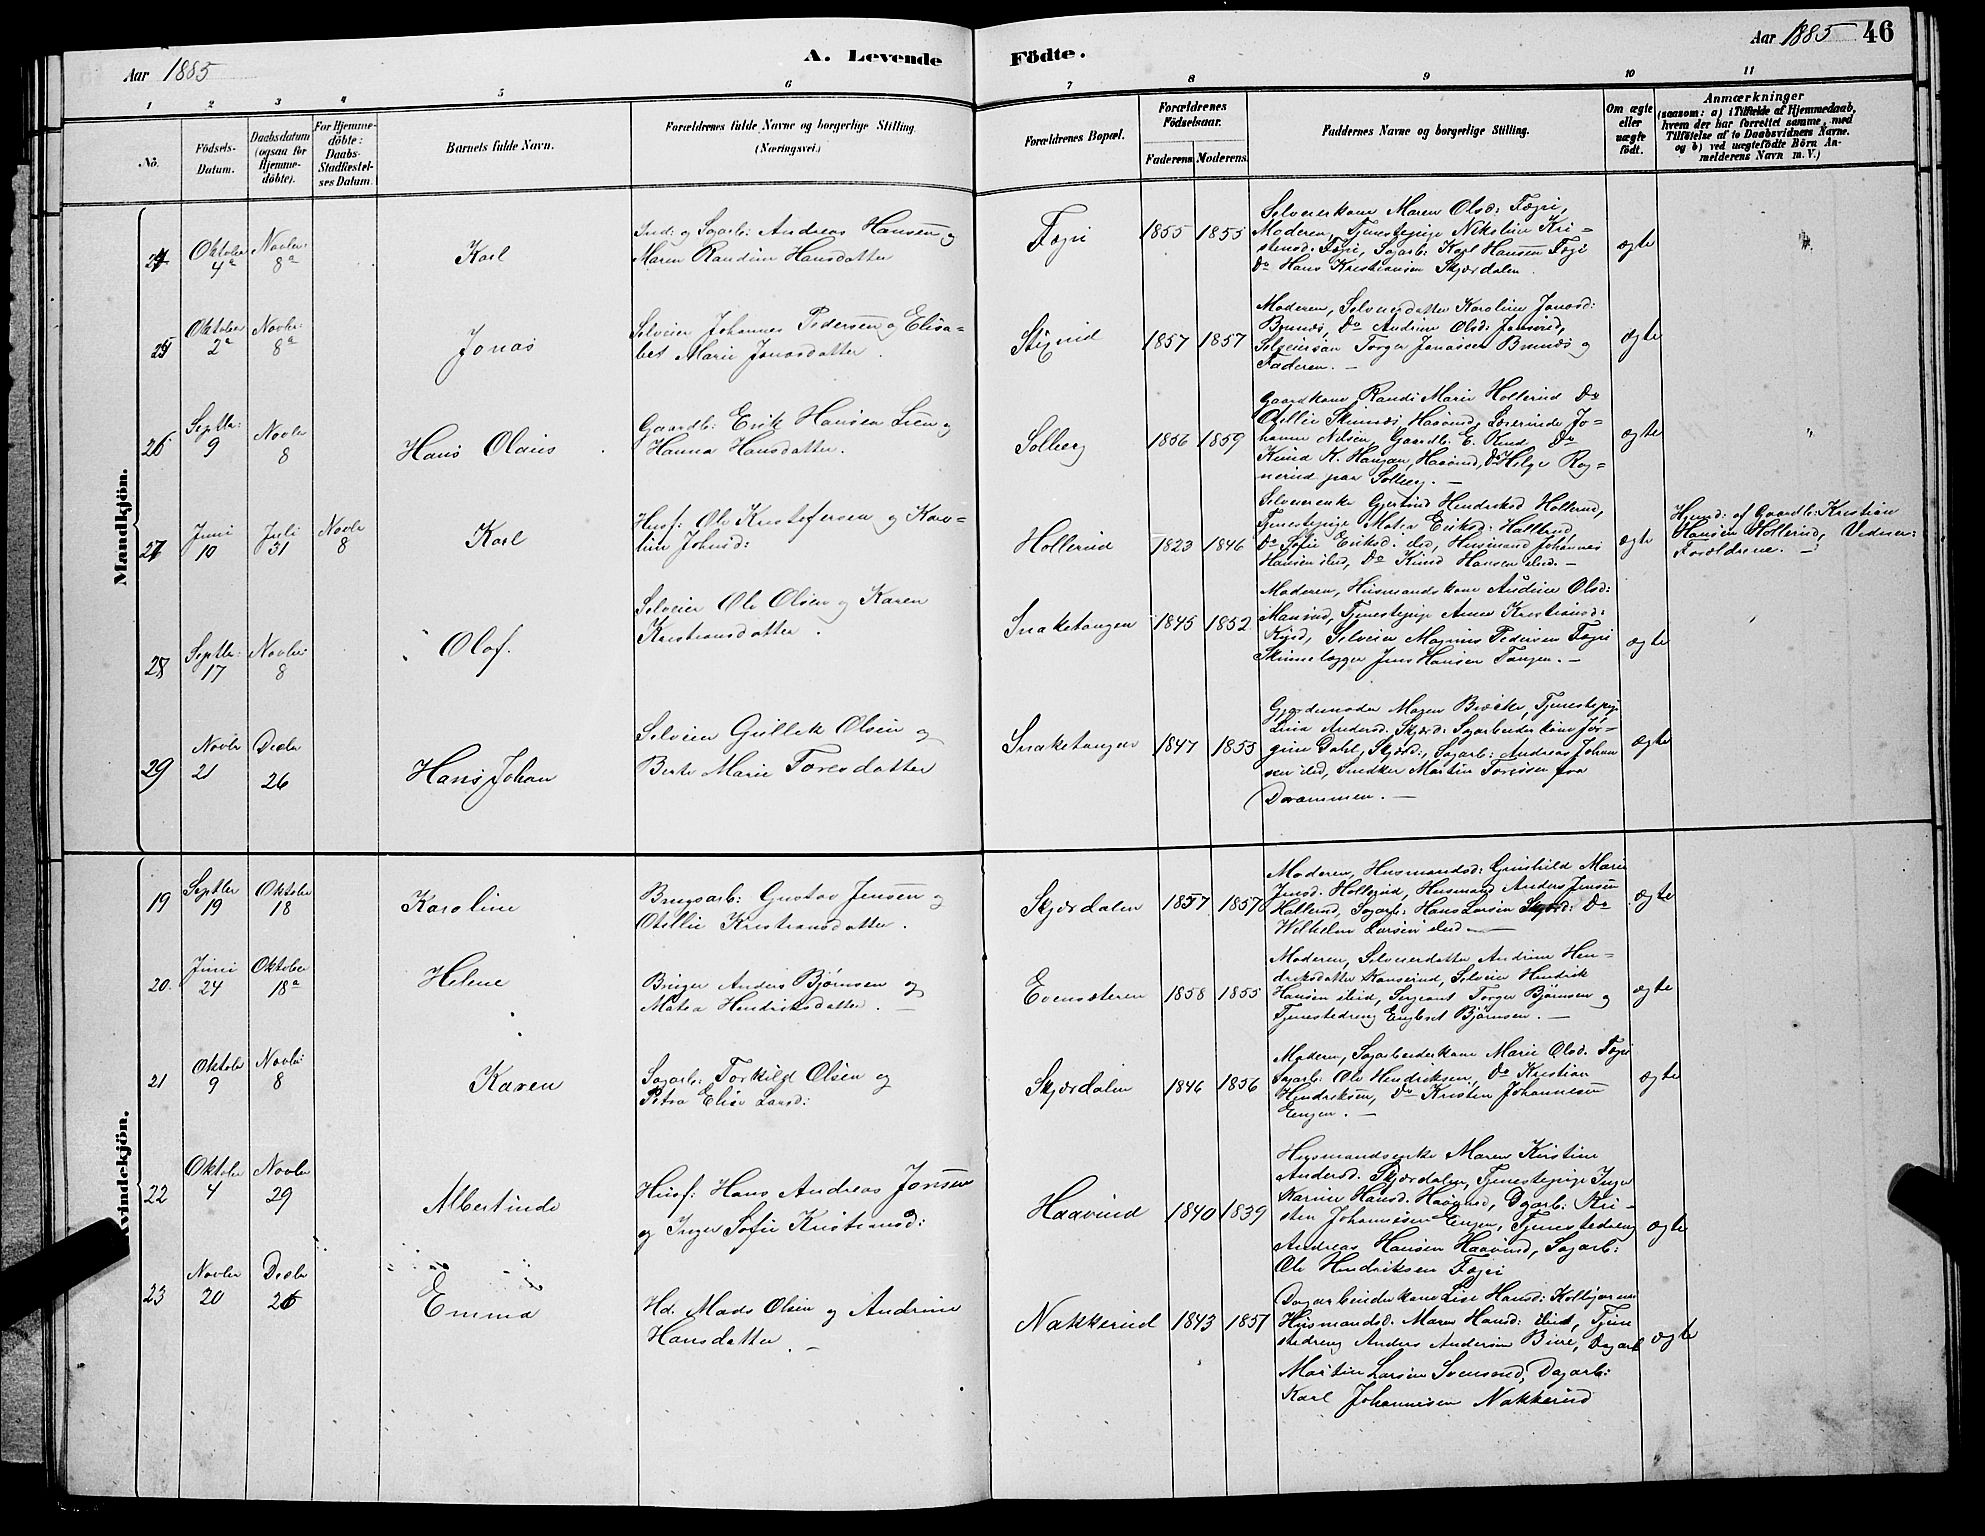 Aar 1885
A. Levende
Födte.
Aar 1885 46
1 2 3 4 5 6 7 8 9 10 11
No.
Födsels-
Datum.
Daabsdatum
(ogsaa for
Hjemme-
döbte).
For Hjemme-
döbte:
Daabs-
Stadfestel-
ses Datum.
Barnets fulde Navn.
Forældrenes fulde Navne og borgerlige Stilling
(Næringsvei.)
Forældrenes Bopæl.
Forældrenes
Födselsaar.
Faderens Moderens.
Faddernes Navne og borgerlige Stilling.
Om ægte
eller
uægte
födt.
Anmærkninger
(saasom: a) i Tilfælde af Hjemmedaab,
hvem der har forrettet samme, med
Tilföielse af to Daabsvidners Navne.
og b) ved uægtefödte Börn An-
melderens Navn m. V.)
Mandkjön.
24
Oktober
4a
Novbr:
8a
Karl
Ind. og Sagarb: Andreas Hansen og
Maren Randine Hansdatter
Fægri
1855 1855
Selveierkone Maren Olsd: Fægri,
Moderen, Tjenestepige Nikoline Kri-
stensd. Fægri, Sagarb: Karl Hansen Fægri
Do Hans Kristiansen Skjærdalen.
ægte
25
Oktober
2a
Novbr:
8a
Jonas
Selveier Johannes Pedersen og Elisa-
bet Marie Jonasdatter.
Stixrud
1857 1857
Moderen, Selveierdatter Karoline Jonasd:
Brunæs, Do Andrine Olsd:
Torger Jonassen Brunæs og
Faderen. —
ægte
26
Septbr:
9
Novbr
8
Hans Olaus
Gaardb: Erik Hansen Lien og
Hanna Hansdatter.
Solberg
1856 1859
Gaardkone Randi Marie Hollerud Do
Otellie Skinnæs, Haavrud, Lærerinde Jo-
hanne Nilsen, Gaardb: E. Rud, Do
Knud K. Haugan, Haavrud, Do Helge Rog-
nerud paa Solberg. —
ægte
27
Juni
10
Juli
31
Novbr
8
Karl
Husf: Ole Kristofersen og Karo-
line Johnsd:
Hollerud
1823 1846
Selveierenke Gjertrud Hendriksd Hollerud,
Tjenestepige Matea Eriksd: Hollerud,
Do Sofie Eriksd. ibid, Husmand Johannes
Hansen ibid, Do Knud Hansen ibid. —
ægte
Hjemd: af Gaardb: Kristian
Hansen Hollerud, Vidner:
Forældrene. —
28
Septbr:
17
Novbr:
8
Olaf.
Selveier Ole Olsen og Karen
Kristiansdatter.
Snaketangen
1845 1852
Moderen, Husmandskone Andine Olsd:
Tjenestepige Anne Kristiansd:
Selveier Magnus Pedersen Fægri
Skindlægger Jens Hansen Tangen. —
ægte
29
Novbr
21
Decbr
26
Hans Johan
Selveier Gullik Olsen og
Berte Marie Toresdatter
Snaketangen
1847 1853
Gjordemoder Maren Tjenestepige
Lina Andersd. Skjærd: Sagarbeiderkone Jør-
gine Dahl, Skjærd:, Sagarb: Andreas Johan
sen ibid, Snedker Martin Toresen fra
Drammen. —
ægte
Kvindekjön.
19
Septbr
19
Oktober
18
Karoline
Brugsarb: Gustav Jensen og
Otellie Kristiansdatter.
Skjærdalen
1857 1857
Moderen, Husmandsd: Gunhild Marie
Jensd. Hollerud, Husmand Anders Jensen
Hollerud, Sagarb: Hans Larsen Skjærd: Do
Wilhelm Larsen ibid —
ægte
20.
Juni
24
Oktober
18a
Helene
Bruger Anders Bjørnsen og
Matea Hendriksdatter. —
Evensæteren
1858 1855
Moderen, Selveierdatter Andrine Hen-
driksdatter Selveier Hendrik
Hansen ibid, Sergeant Torger Bjørnsen og
Tjenestedreng Engbret Bjørnsen. —
ægte
21
Oktober
9
Novbr:
8
Karen
Sagarb: Torkild Olsen og
Petra Elise Larsd:
Skjærdalen
1846 1856
Moderen, Sagarbeiderkone Marie Olsd. Fægri
Sagarb: Ole Hendriksen, Do Kristian
Hendriksen, Do Kristen Johannesen
Engen. —
ægte
22
Oktober
4
Novbr
29
Albertinde
Husf: Hans Andreas Jonsen
og Inger Sofie Kristiansd:
Haavrud
1840 1839
Husmandsenke Maren Kirstine
Andersd. Skjærdalen, Tjenestepige Inger
Karine Hansd. Haavrud, Dgarb: Kri-
sten Johannesen Engen, Tjenestedreng
Andreas Hansen Haavrud, Sagarb:
Ole Hendriksen Fægri
ægte
23
Novbr
20
Decbr
26
Emma
Hd. Mads Olsen og Andrine
Hansdatter. —
Nakkerud
1843 1851
Dagarbeiderkone Lise Hansd:
Husmandsd. Maren Hansd: ibid, Tjene
stedreng Anders Andersen Dagarb
Martin Larsen Svensrud, Dagarb:
Karl Johannesen Nakkerud
ægte